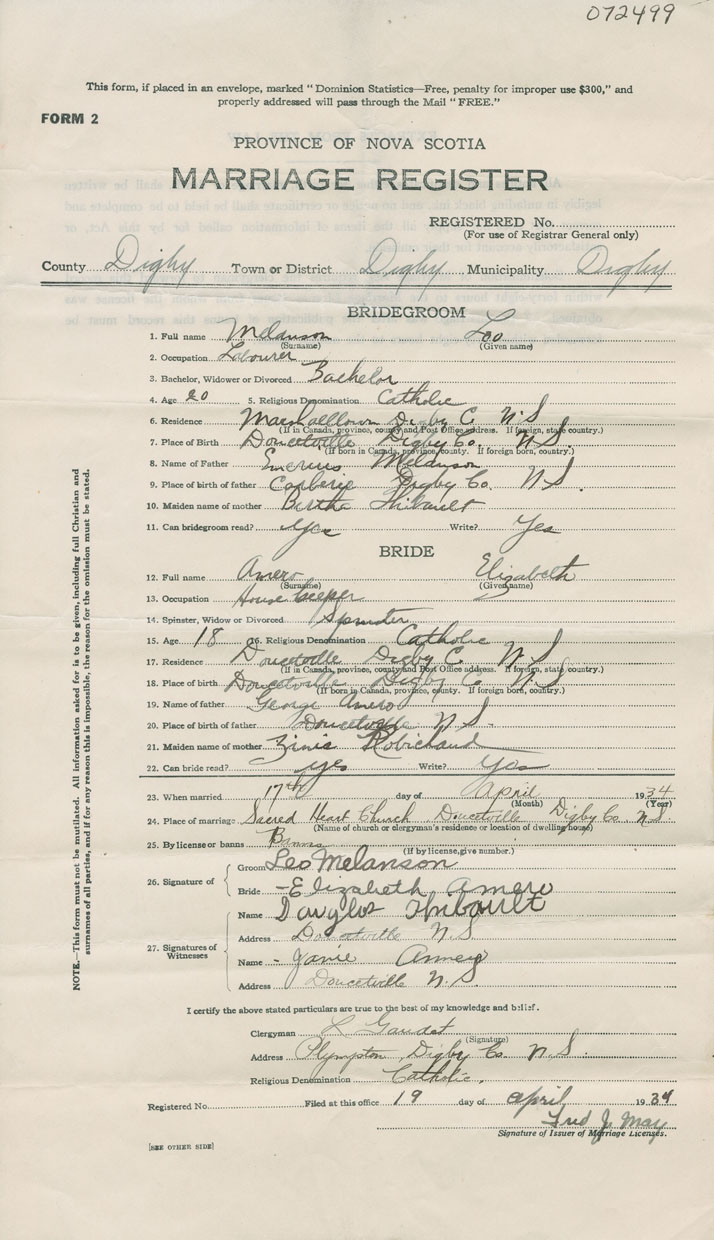 072499
This form, if placed in an envelope, marked "Dominion Statistics—Free, penalty for improper use $300," and
properly addressed will pass through the Mail "FREE."
FORM 2
PROVINCE OF NOVA SCOTIA
MARRIAGE REGISTER
REGISTERED No.
(For use of Registrar General only)
County Digby Town or District Digby Municipality Digby
BRIDEGROOM
1. Full name Melanson Leo
(Surname) (Given name)
2. Occupation Labourer
3. Bachelor, Widower or Divorced Bachelor
4. Age 20 5. Religious Denomination Catholic
6. Residence Marshalltown Digby C. N. S
(If in Canada, province, county and Post Office address. If foreign, state country.)
7. Place of Birth Doucetville Digby Co. N. S.
(If born in Canada, province, county. If foreign born, country.)
8. Name of Father Melanson
9. Place of birth of father Corberie Digby Co. N S.
10. Maiden name of mother Bertha Thibault
11. Can bridegroom read? Yes Write? Yes
BRIDE
12. Full name Amero Elizabeth
(Surname) (Given name)
13. Occupation House keeper
14. Spinster, Widow or Divorced Spinster
15. Age 18 16. Religious Denomination Catholic
17. Residence Doucetville Digby C. N. S
(If in Canada, province, county and Post Office address. If foreign, state country.)
18. Place of birth Doucetville Digby C. N. S.
(If born in Canada, province, county. If foreign born, country.)
19. Name of father George Amero
20. Place of birth of father Doucetville N. S.
21. Maiden name of mother Robichaud
22. Can bride read? Yes Write? Yes
23. When married 17th day of April 1934
(Month) (Year)
24. Place of marriage Sacred Heart Church Doucetville Digby Co. N. S.
(Name of church or clergyman's residence or location of dwelling house)
25. By license or banns Banns
(If by license, give number.)
26. Signature of
Groom Leo Melanson
Bride - Elizabeth Amero
27. Signatures of Witnesses
Name Douglas Thibault
Address Doucetville N. S.
Name - Janie Amero
Address Doucetville N. S.
I certify the above stated particulars are true to the best of my knowledge and belief.
Clergyman L Gaudet
(Signature)
Address Plympton Digby Co. N. S.
Religious Denomination Catholic.
Registered No. Filed at this office 19 day of April 1934
Fred J. May
Signature of Issuer of Marriage Licenses.
[SEE OTHER SIDE]
NOTE.—This form must not be mutilated. All information asked for is to be given, including full Christian and
surnames of all parties, and if for any reason this is impossible, the reason for the omission must be stated.